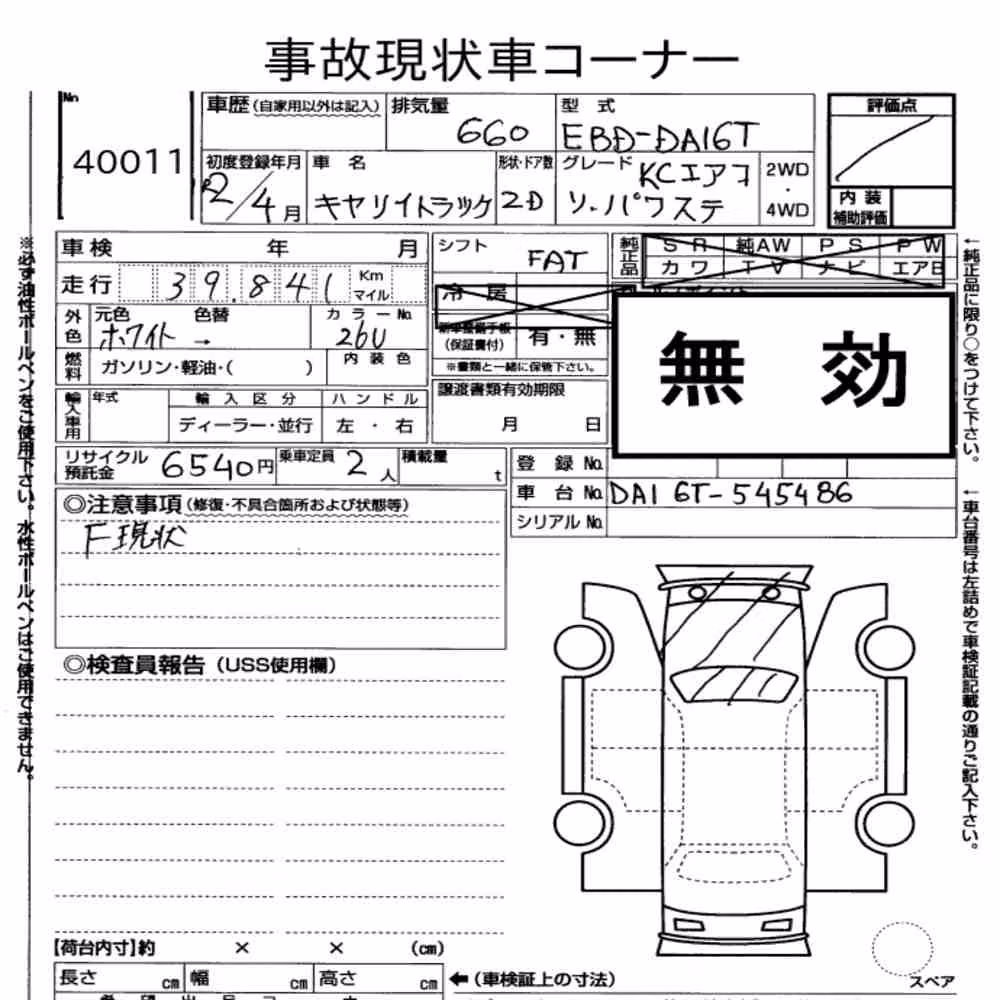 事故現状車コーナー
No
40011
車歴(自家用以外は記入)
排気量
660
型式
EBD-DA16T
評価点
初度登録年月
R2/4月
車名
キヤリイトラック
形状・ドア数
2D
グレード
KCエアコ
ン.パワステ
2WD
・
4WD
内装
補助評価
車検 年 月
シフト
FAT
純正品
SR 純AW PS PW
カワ TV ナビ エアB
走行 39.841 Km
マイル
冷房
外色
元色 色替
ホワイト →
カラーNo.
26U
新車整備手帳
(保証書付)
有・無
※書類と一緒に保管下さい。
無効
燃料
ガソリン・軽油・( )
内装色
譲渡書類有効期限
月 日
輸入車用
年式
輸入区分
ハンドル
ディーラー・並行
左・右
リサイクル
預託金
6540円
乗車定員 2人
積載量
t
登録No.
車台No. DA16T-545486
シリアルNo.
◎注意事項(修復・不具合箇所および状態等)
F現状
◎検査員報告(USS使用欄)
【荷台内寸】約 × × (cm)
長さ cm 幅 cm 高さ cm
←(車検証上の寸法)
スペア
※必ず油性ボールペンをご使用下さい。水性ボールペンはご使用できません。
←純正品に限り○をつけて下さい。
←車台番号は左詰めで車検証記載の通りご記入下さい。